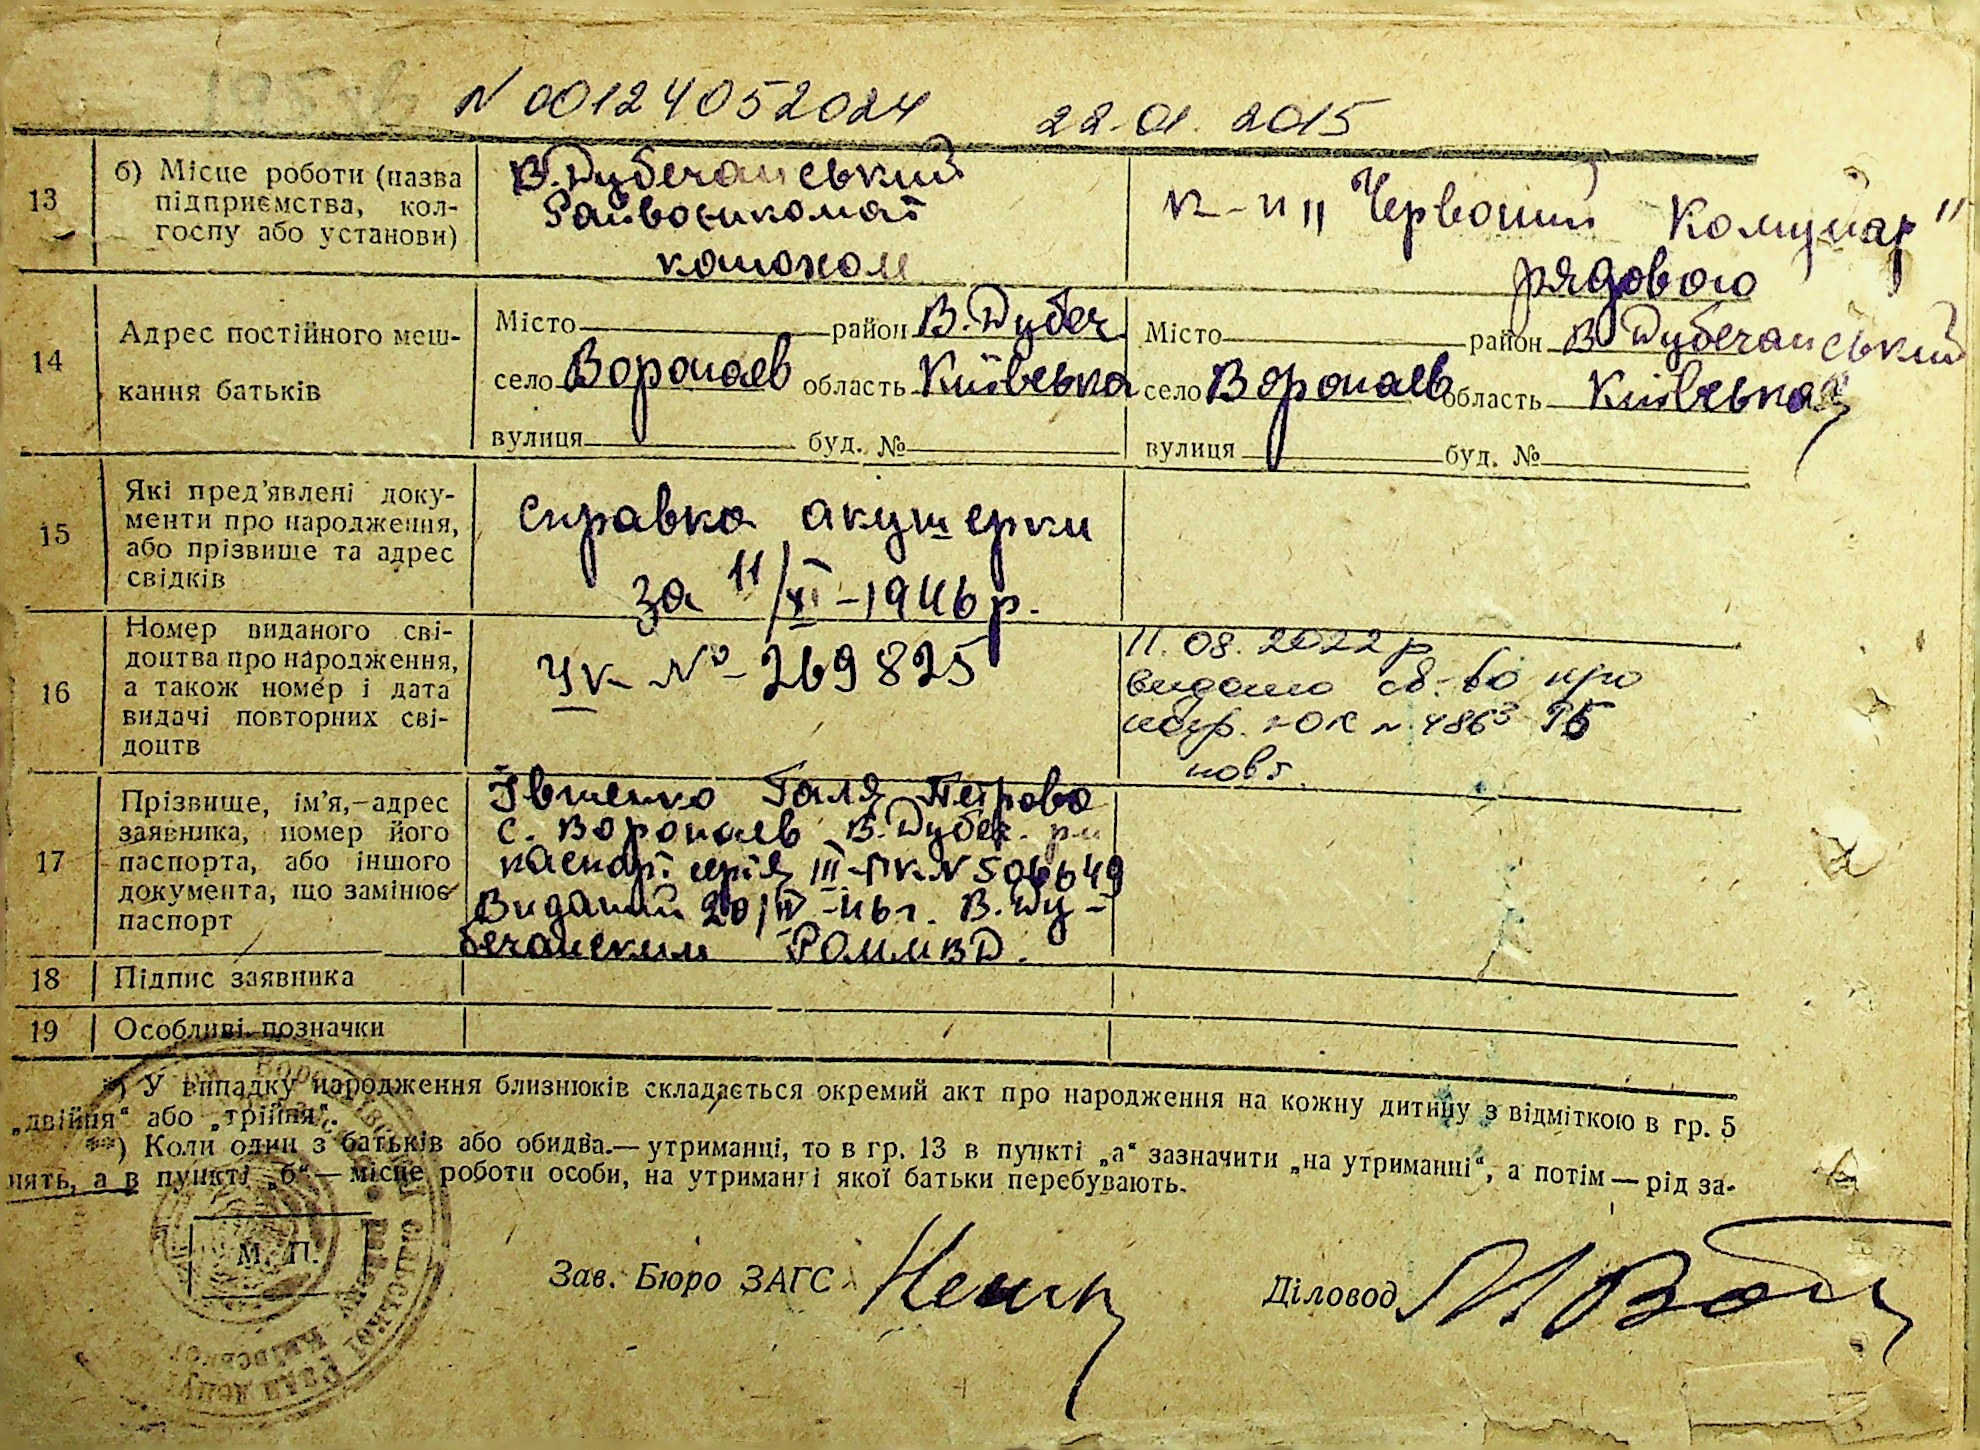 N 00124052024 22.01.2015
13 б) Місце роботи (назва підприємства, кол-
госпу або установи)
В.Дубечанський
Райвоєнкомат
конюхом
к-п „Червоний Комунар"
рядовою
14 Адрес постійного меш-
кання батьків
Місто район В.Дубеч
село Воропаєв область Київська
вулиця буд. №
Місто район В Дубечанський
село Воропаєв область Київська
вулиця буд. №
15 Які пред'явлені доку-
менти про народження,
або прізвище та адрес
свідків
справка акушерки
за 11/XI-1946р.
16 Номер виданого сві-
доцтва про народження,
а також номер і дата
видачі повторних сві-
доцтв
Ук № 269825
11.08.2022р
видано св-во про
нар.
повт.
17 Прізвище, ім'я,-адрес
заявника, номер його
паспорта, або іншого
документа, що замінює
паспорт
Івшенко Галя Петрова
с. Воропаєв В.Дубеч. р-н
паспорт серія III-ПК N 506649
Виданий 20/IV-46г. В.Ду-
бечанским РОММВД.
18 Підпис заявника
19 Особливі позначки
*) У випадку народження близнюків складається окремий акт про народження на кожну дитину з відміткою в гр. 5
„двійня“ або „трійня“.
**) Коли один з батьків або обидва.— утриманці, то в гр. 13 в пункті „а“ зазначити „на утриманні“, а потім — рід за-
нять, а в пункті „б“ — місце роботи особи, на утриманні якої батьки перебувають.
М. П.
Зав. Бюро ЗАГС
Діловод